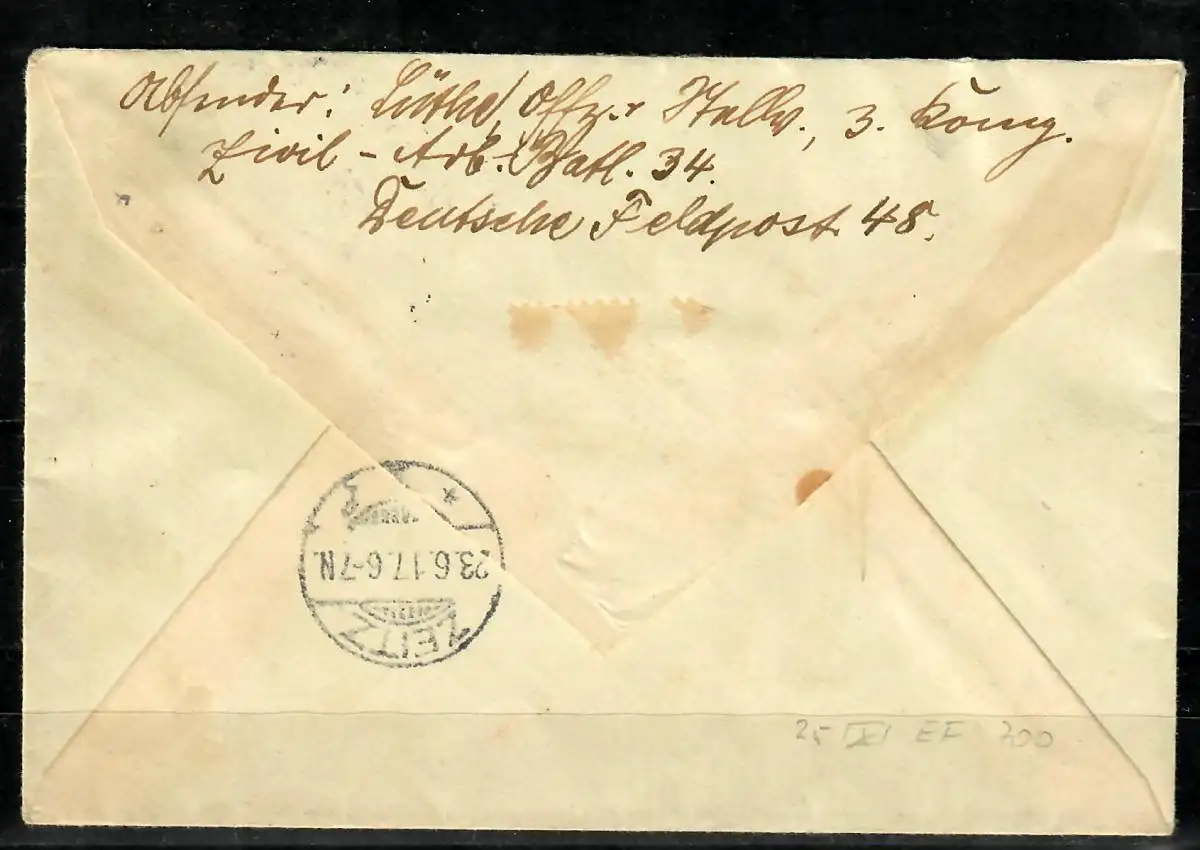 Absender: Lüthe, Offz.-Stellv., 3. Komp.
Zivil-Arb.-Batl. 34.
Deutsche Feldpost 48.
23.6.17.6-7N.
ZEITZ
25 X EF 200